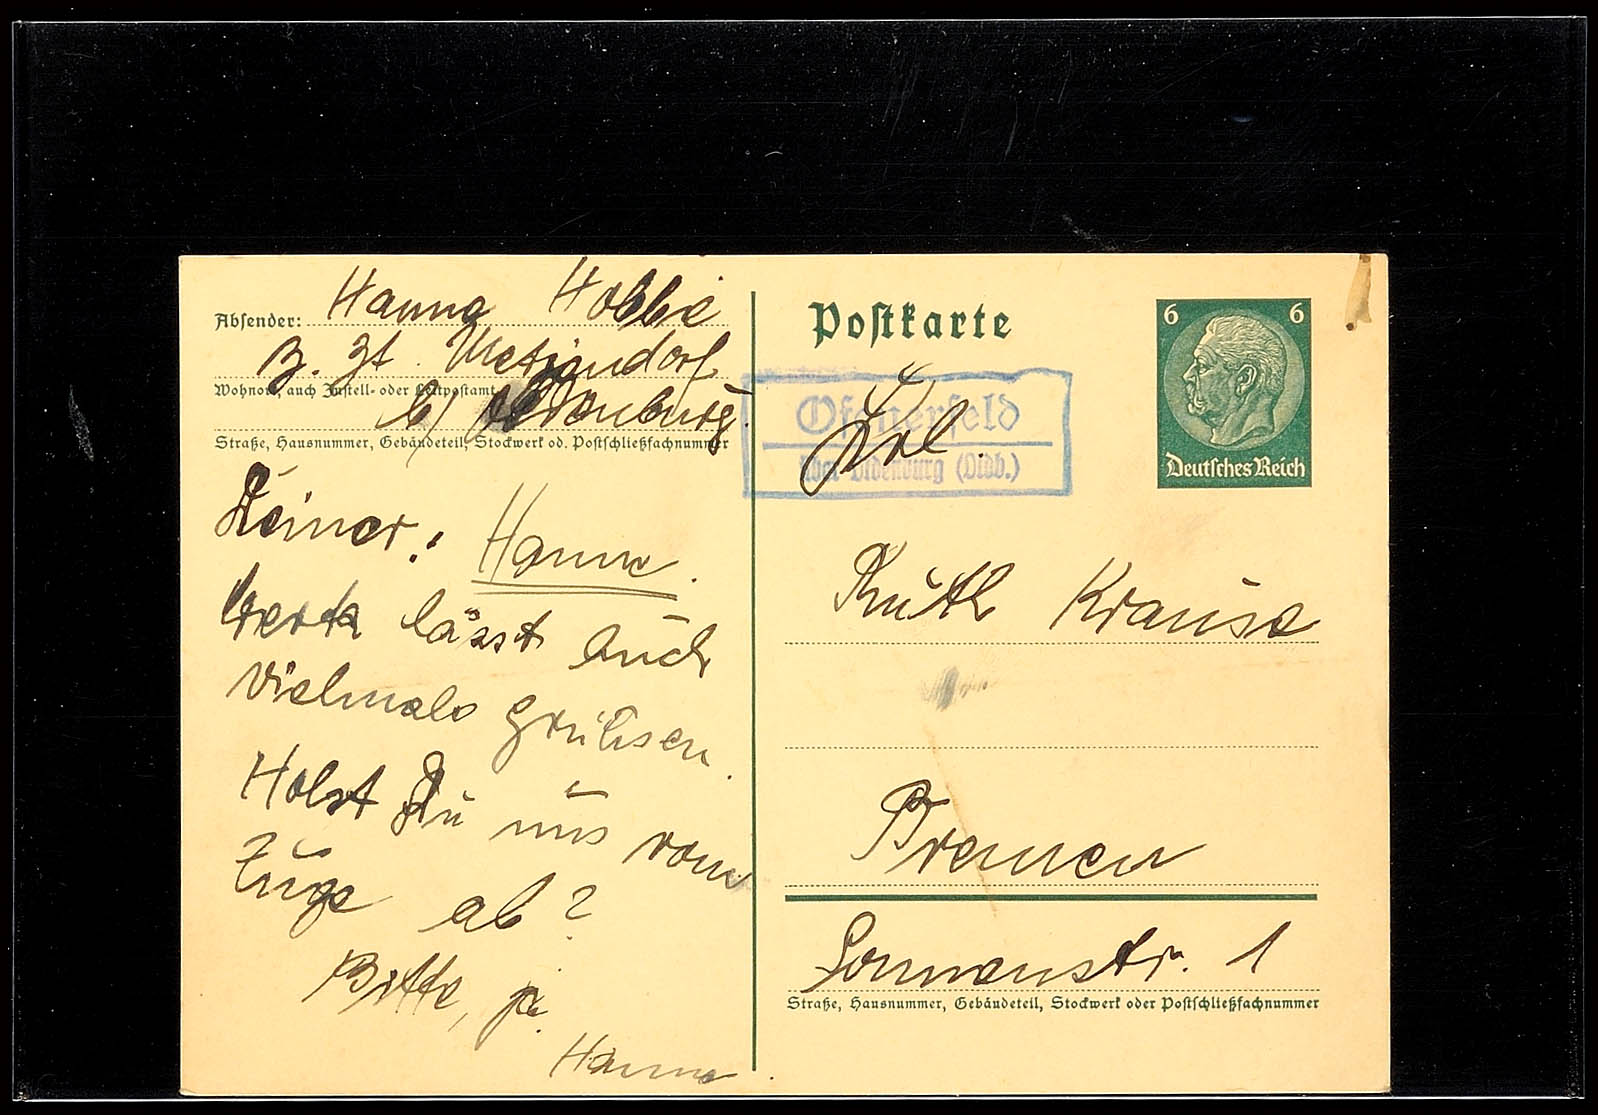 Absender: Hanna Hobbie
z. Zt. Metjendorf
Wohnort, auch Zustell- oder Leitpostamt
b/ Oldenburg.
Straße, Hausnummer, Gebäudeteil, Stockwerk od. Postschließfachnummer
Deiner: Hanna.
lässt auch
vielmals grüssen.
Holst Du uns vom
Zuge ab?
Bitte, ja.
Hanna.
Postkarte
6 6
Deutsches Reich
Ofenerfeld
über Oldenburg (Oldb.)
Frl.
Ruth Krause
Bremen
Sonnenstr. 1
Straße, Hausnummer, Gebäudeteil, Stockwerk oder Postschließfachnummer